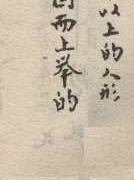 以上的人形
因而上举的